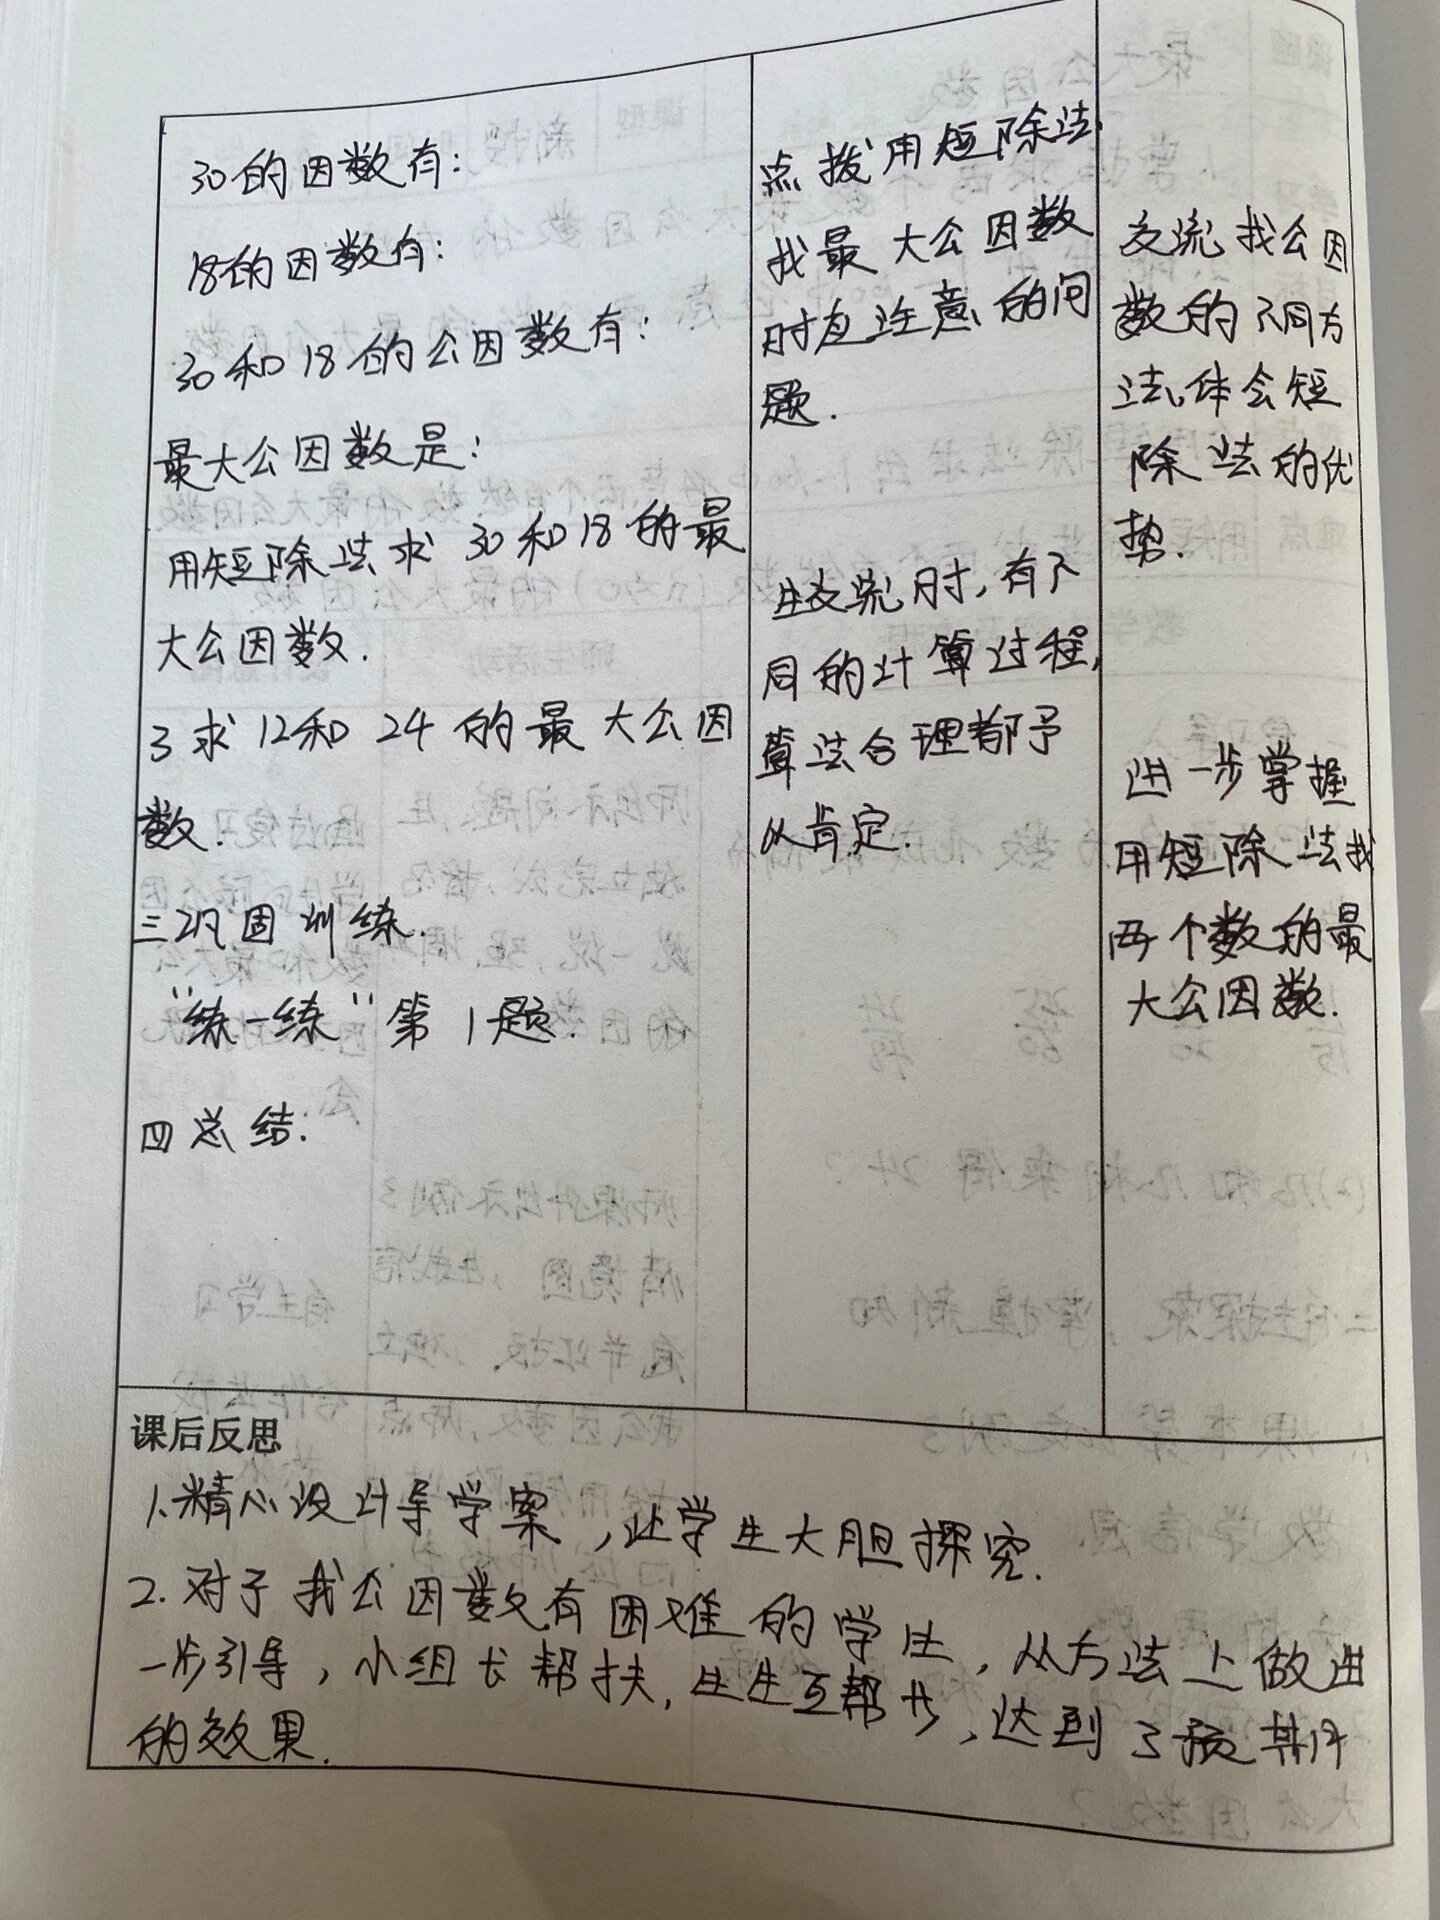 30的因数有：
18的因数有：
30和18的公因数有：
最大公因数是：
用短除法求30和18的最
大公因数.
3求12和24的最大公因
数.
三巩固训练.
“练一练”第1题.
四总结.
点拨用短除法
找最大公因数
时应注意的问
题.
生交流时,有不
同的计算过程,
算法合理都予
以肯定.
交流找公因
数的不同方
法,体会短
除法的优
势.
进一步掌握
用短除法找
两个数的最
大公因数.
课后反思
1.精心设计导学案,让学生大胆探究.
2.对于找公因数有困难的学生,从方法上做进
一步引导,小组长帮扶,生生互帮,达到了预期
的效果.